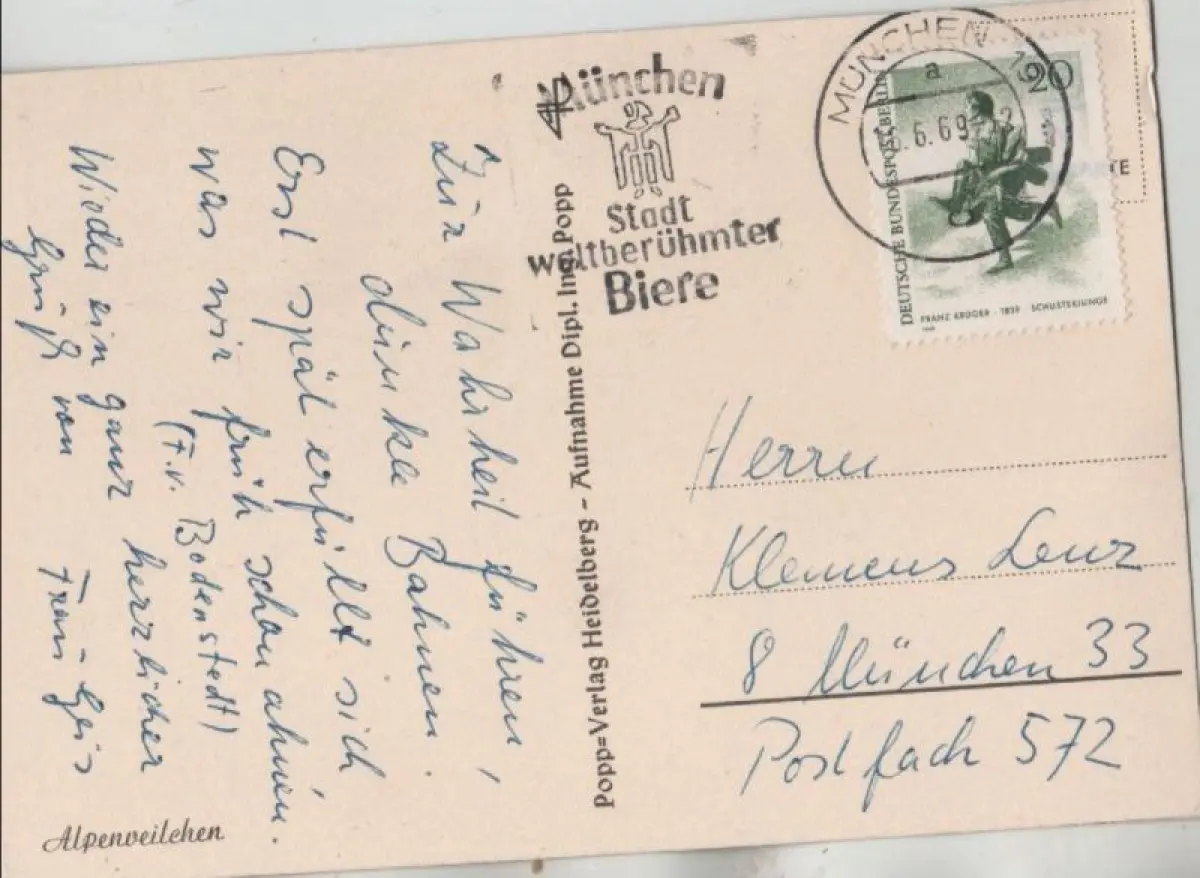 Zur Wahrheit führen,
dunkle Bahnen.
Erst spät erfüllt sich
was wir früh schon ahnen.
(F. v. Bodenstedt)
Wieder ein ganz herzlicher
Gruß von
Alpenveilchen
Popp=Verlag Heidelberg - Aufnahme Dipl. Ing. Popp
München
Stadt
weltberühmter
Biere
MÜNCHEN
a
6.69
20
DEUTSCHE BUNDESPOST BERLIN
FRANZ KRÜGER · 1839 SCHUSTERJUNGE
Herrn
Klemens Lenz
8 München 33
Postfach 572